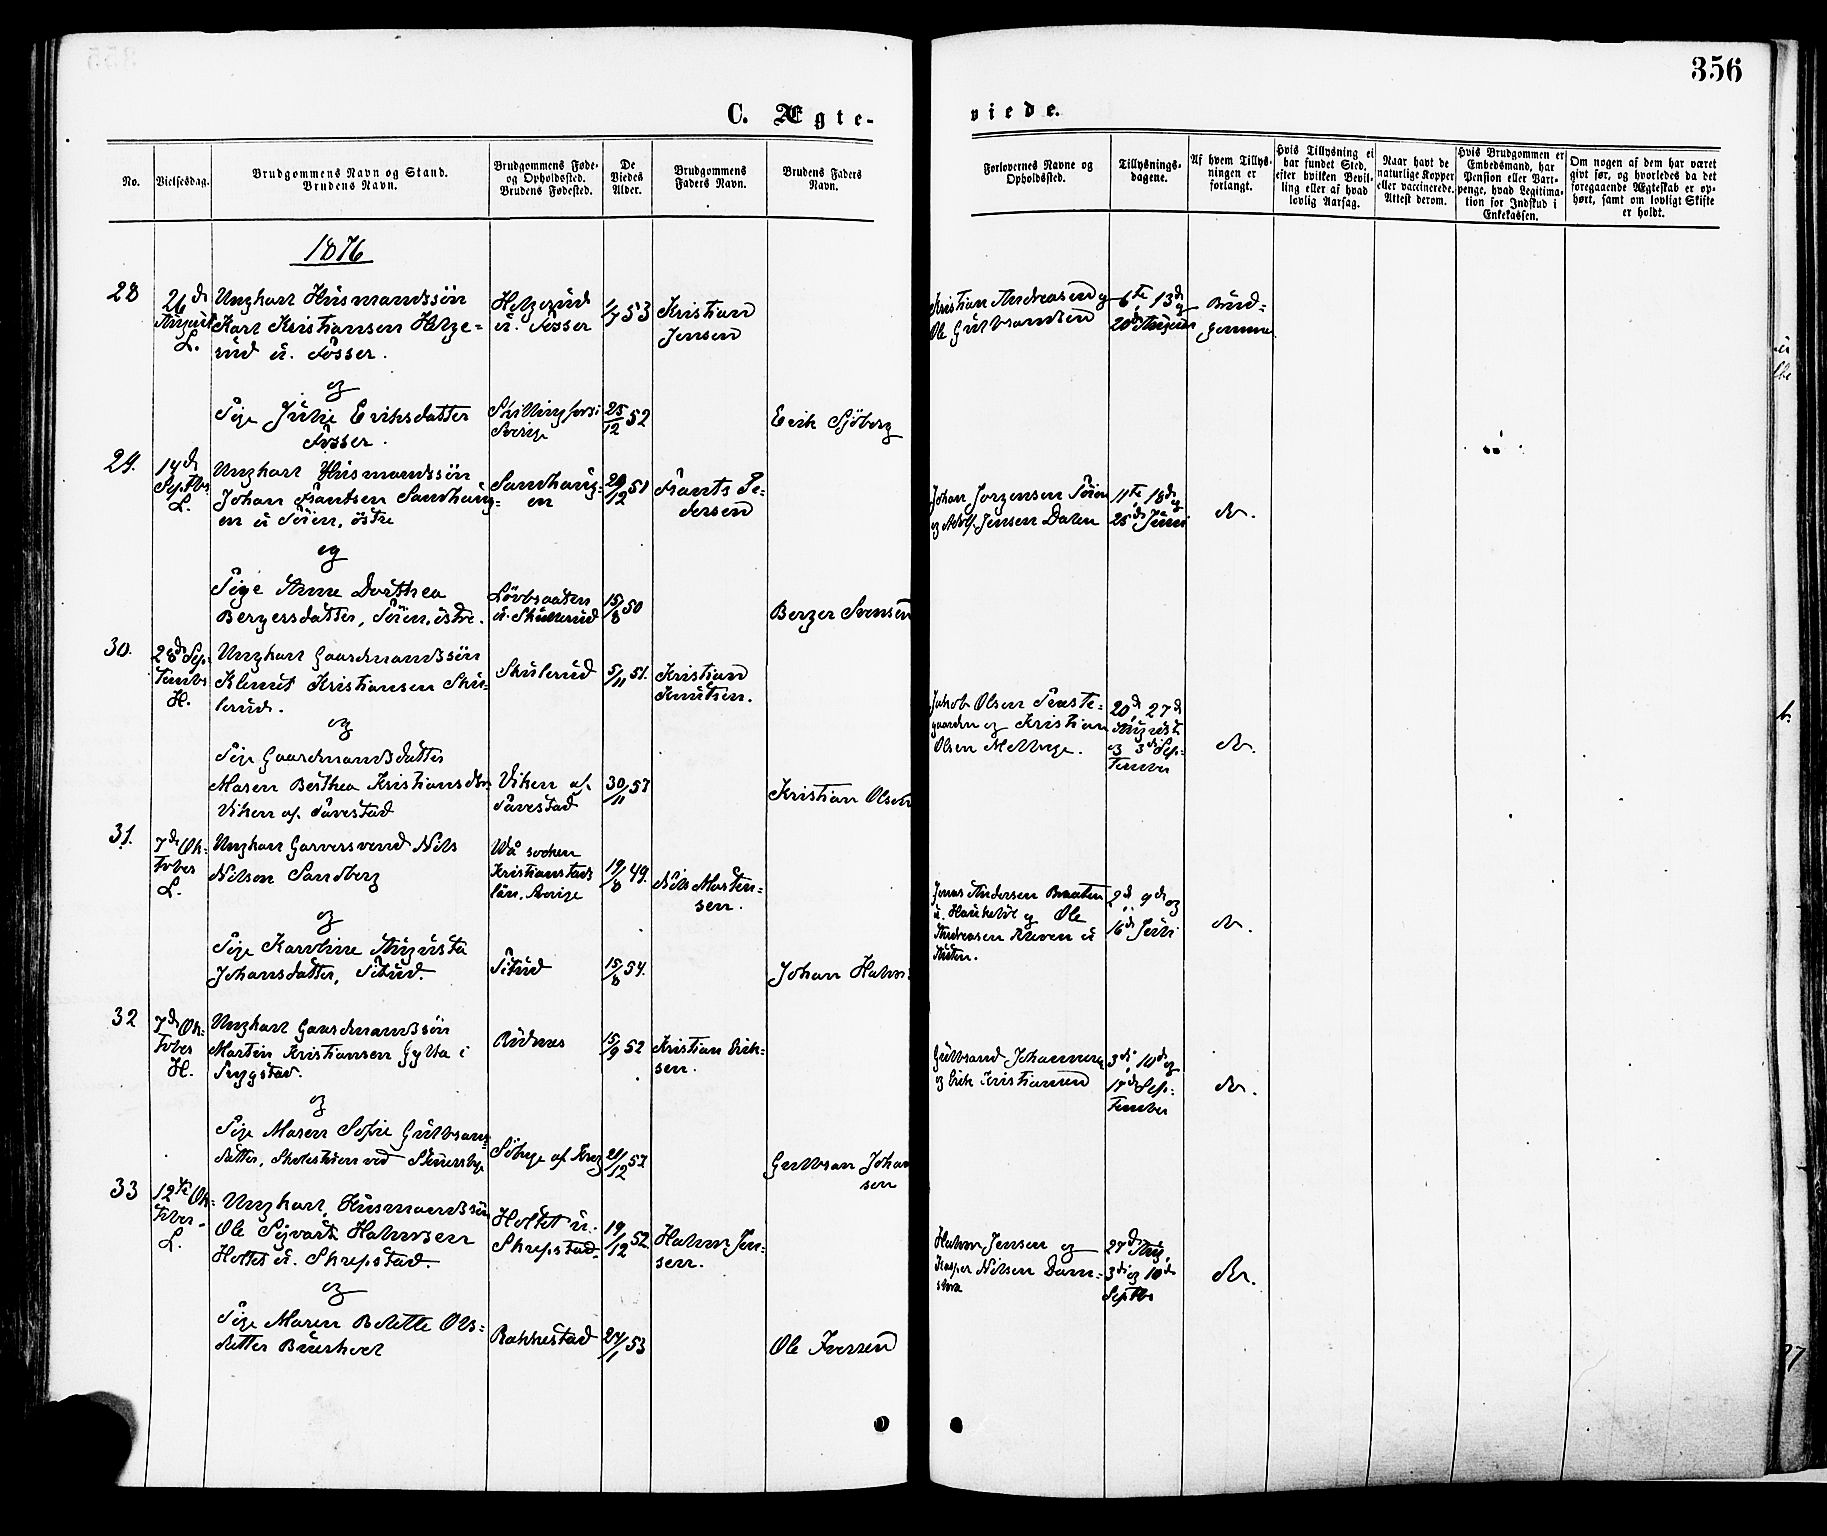 356
C. Ægte-
viede.
No.
Vielsesdag.
Brudgommens Navn og Stand.
Brudens Navn.
Brudgommens Føde-
og Opholdssted.
Brudens Fødested.
De
Viedes
Alder.
Brudgommens
Faders Navn.
Brudens Faders
Navn.
Forlovernes Navne og
Opholdssted.
Tillysnings-
dagene.
Af hvem Tillys-
ningen er
forlangt.
Hvis Tillysning ei
har fundet Sted,
efter hvilken Bevil-
ling eller af hvad
lovlig Aarsag.
Naar havt de
naturlige Kopper
eller vaccinerede.
Attest derom.
Hvis Brudgommen er
Embedsmand, har
Pension eller Vart-
penge, hvad Legitima-
tion for Indskud i
Enkekassen.
Om nogen af dem har været
givt før, og hvorledes da det
foregaaende Ægteskab er op-
hørt, samt om lovligt Skifte
er holdt.
1876
28
26de
August
L.
Ungkarl Husmandssøn
Karl Kristiansen
sud u. Fosser.
og
Pige Julie Eriksdatter
Fosser.
u. Fosser
Sverige
1/7 53
25/12 52
Kristian
Jensen
Erik Sjöberg
Kristian Andreasen og
Ole Gulbrandsen
6te, 13de og
20de August
Brud-
gommen
29.
14de
Septbr
L.
Ungkarl Husmandssøn
Johan Frantsen Sandhaug-
en u Søien, østre
og
Pige Anne Dorthea
Bergersdatter, Søien, østre.
Sandhaug-
en
u. Skullerud
29/12 51
15/8 50
Frants Pe-
dersen
Berger Svensen
Johan Jørgensen Søien
og Adolf Jensen Dalen
11te 18de og
25de Juni
do.
30.
28de Sep-
tember
H.
Ungkarl Gaardmandssøn
Klemet Kristiansen Sku-
lerud.
og
Pige Gaardmandsdatter
Maren Berthea Kristiansdtr
Viken af
Skulerud
Viken af
5/11 51.
30/11 53
Kristian
Knutsen.
Kristian Olsen
Jakob Olsen Præste-
gaarden og Kristian
Olsen Mellege.
20de, 27de
August
og 3die Sep-
tember
do.
31.
7de Ok-
tober
L.
Ungkarl Garversvend Nils
Nilson Sandberg
og
Pige Karoline Augusta
Johansdatter, Situd.
Wå socken
Kristianstads
län, Sverige
Situd
19/8 49.
15/8 54.
Nils Morten-
sen.
Johan Halvor
Jonas Andersen Braaten
og Ole
Andreasen
2de 9de og
16de Juli
do.
32
7de Ok-
tober
H.
Ungkarl Gaardmandssøn
Martin Kristiansen Gylta i
og
Pige Maren Sofie Gulbrands-
datter,
Rudnæs
15/9 52
21/12 52
Kristian Erik-
sen.
Gulbran Johan
sen
Gulbrand Johannesen
og Erik Kristiansen
3die, 10de og
17de Sep-
tember
do.
33
12te Ok-
tober.
L.
Ungkarl, Husmandssøn
Ole Sigvart Halvorsen
Holtet u. Skrepstad.
og
Pige Maren Bolette Ols-
datter
Holtet u.
Skrepstad.
Rakkestad
19/12 52.
24/1 53
Halvor Jen-
sen.
Ole Iversen
Halvor Jensen og
Kasper Nilsen Dam-
27de Aug,
3die og 10de
Septbr
do.